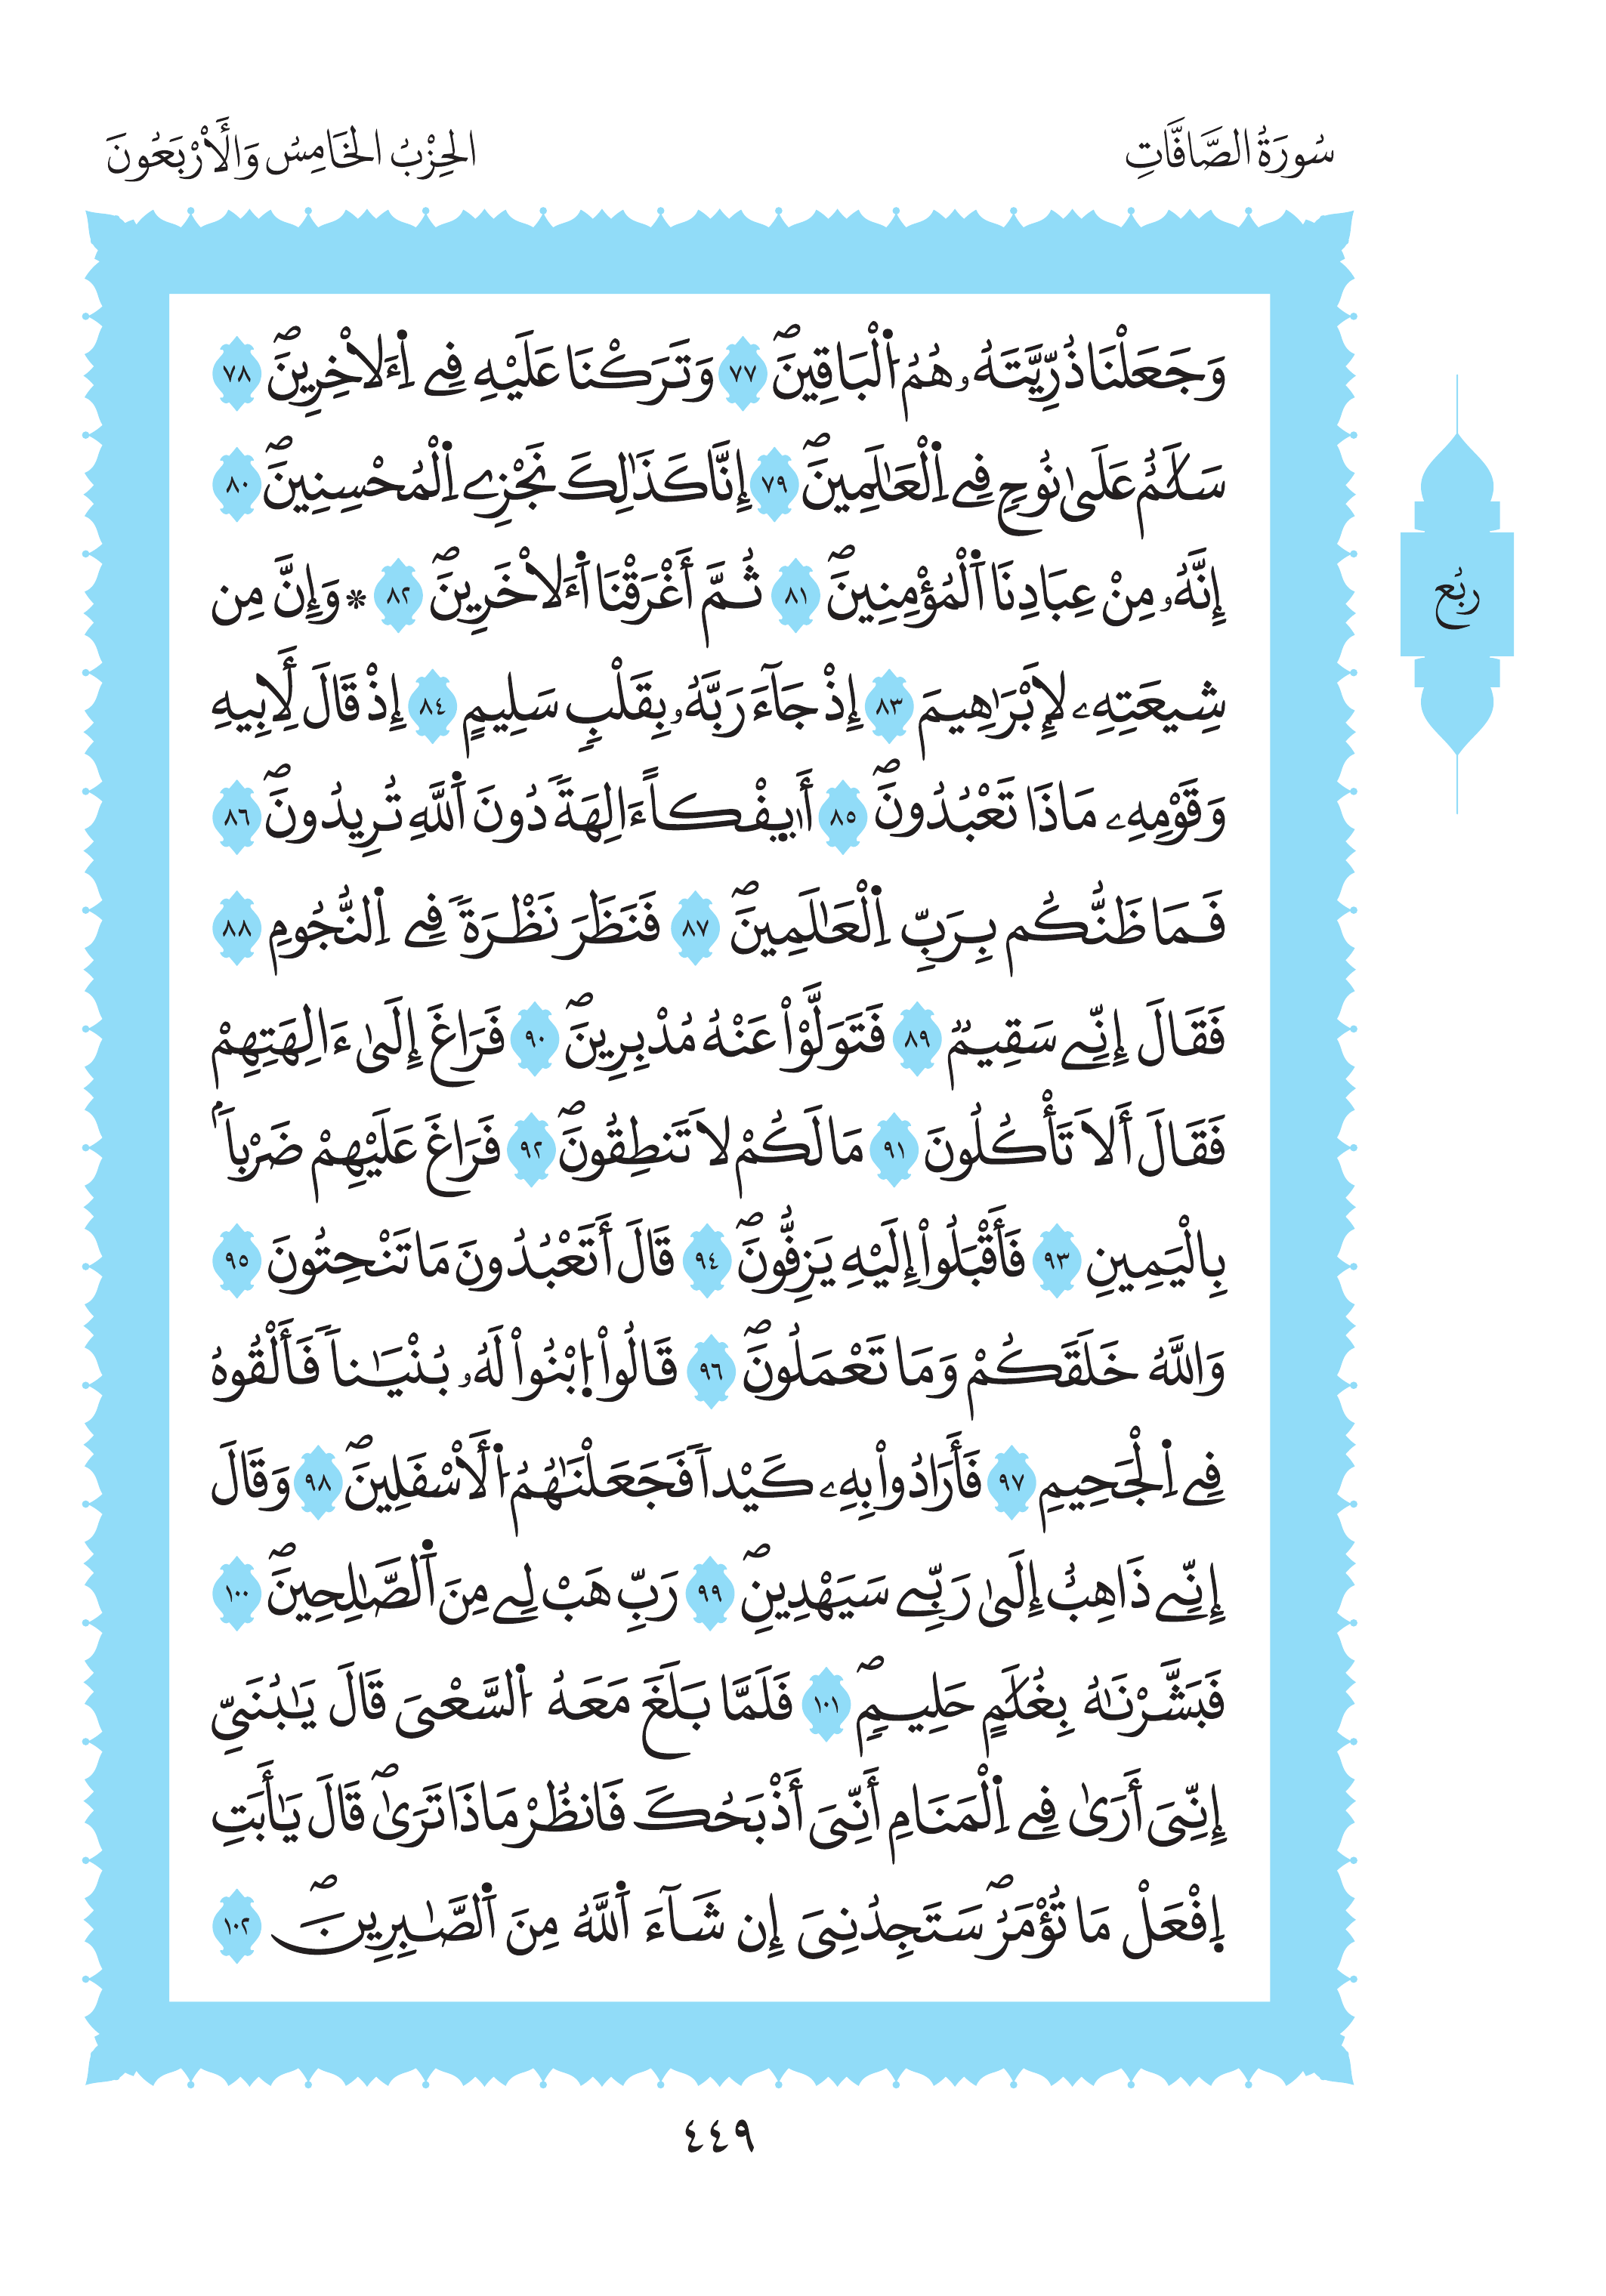 سُورَةُ الصَّافَّاتِ
الحِزْبُ الخَامِسُ وَالأَرْبَعُونَ
وَجَعَلْنَا ذُرِّيَّتَهُۥ هُمُ اُ۬لْبَاقِينَۖ ٧٧ وَتَرَكْنَا عَلَيْهِ فِے اِ۬ءَلاْخِرِينَۖ ٧٨
سَلَٰمٌ عَلَىٰ نُوحٖ فِے اِ۬لْعَٰلَمِينَۖ ٧٩ إِنَّا كَذَٰلِكَ نَجْزِے اِ۬لْمُحْسِنِينَۖ ٨٠
إِنَّهُۥ مِنْ عِبَادِنَا اَ۬لْمُؤْمِنِينَۖ ٨١ ثُمَّ أَغْرَقْنَا اَ۬ءَلاْخَرِينَۖ ٨٢ * وَإِنَّ مِن
شِيعَتِهِۦ لَإِبْرَٰهِيمَ ٨٣ إِذْ جَآءَ رَبَّهُۥ بِقَلْبٖ سَلِيمٍ ٨٤ إِذْ قَالَ لِأَبِيهِ
وَقَوْمِهِۦ مَاذَا تَعْبُدُونَۖ ٨٥ أَئِفْكاً ءَالِهَةٗ دُونَ اَ۬للَّهِ تُرِيدُونَۖ ٨٦
فَمَا ظَنُّكُم بِرَبِّ اِ۬لْعَٰلَمِينَۖ ٨٧ فَنَظَرَ نَظْرَةٗ فِے اِ۬لنُّجُومِ ٨٨
فَقَالَ إِنِّے سَقِيمٞ ٨٩ فَتَوَلَّوْاْ عَنْهُ مُدْبِرِينَۖ ٩٠ فَرَاغَ إِلَىٰ ءَالِهَتِهِمْ
فَقَالَ أَلَا تَأْكُلُونَ ٩١ مَا لَكُمْ لَا تَنطِقُونَۖ ٩٢ فَرَاغَ عَلَيْهِمْ ضَرْباَۢ
بِالْيَمِينِ ٩٣ فَأَقْبَلُواْ إِلَيْهِ يَزِفُّونَۖ ٩٤ قَالَ أَتَعْبُدُونَ مَا تَنْحِتُونَ ٩٥
وَاللَّهُ خَلَقَكُمْ وَمَا تَعْمَلُونَۖ ٩٦ قَالُواْ اُ۪بْنُواْ لَهُۥ بُنْيَٰناٗ فَأَلْقُوهُ
فِے اِ۬لْجَحِيمِ ٩٧ فَأَرَادُواْ بِهِۦ كَيْداٗ فَجَعَلْنَٰهُمُ اُ۬لْأَسْفَلِينَۖ ٩٨ وَقَالَ
إِنِّے ذَاهِبٌ إِلَىٰ رَبِّے سَيَهْدِينِۖ ٩٩ رَبِّ هَبْ لِے مِنَ اَ۬لصَّٰلِحِينَۖ ١٠٠
فَبَشَّرْنَٰهُ بِغُلَٰمٍ حَلِيمٖۖ ١٠١ فَلَمَّا بَلَغَ مَعَهُ اُ۬لسَّعْىَ قَالَ يَٰبُنَىِّ
إِنِّىَ أَرَىٰ فِے اِ۬لْمَنَامِ أَنِّىَ أَذْبَحُكَ فَانظُرْ مَاذَا تَرَىٰۖ قَالَ يَٰأَبَتِ
اِ۪فْعَلْ مَا تُؤْمَرُۖ سَتَجِدُنِىَ إِن شَآءَ اَ۬للَّهُ مِنَ اَ۬لصَّٰبِرِينَۖ ١٠٢
ربُع
٤٤٩